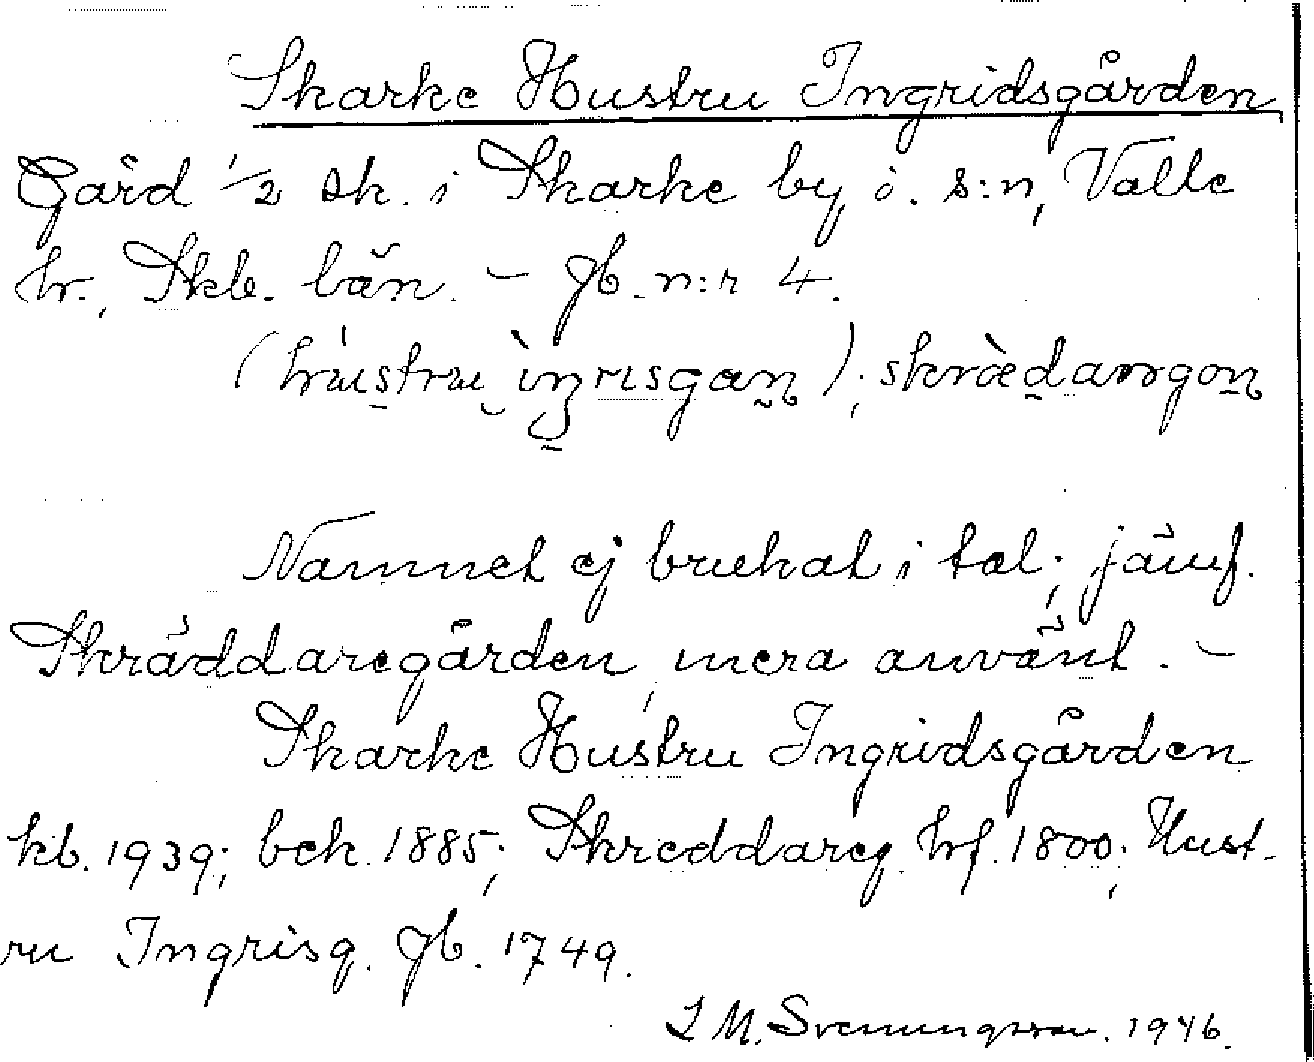 Skarke Hustru Ingridsgården
Gård 1/2 sk. i Skarke by, ö. s:n, Valle
hr., Skb. län. – Jb. n:r 4.
(hùstru ìŋrisgaṇ); skræ̀dargoṇ
Namnet ej brukat i tal; jämf.
Skräddaregården, mera använt. –
Skarke Hustru Ingridsgården
kb. 1939; bek. 1885; Skreddareg. hf. 1800; Hust-
ru Ingrisg. Jb. 1749.
I. M. Svenungsson. 1946.